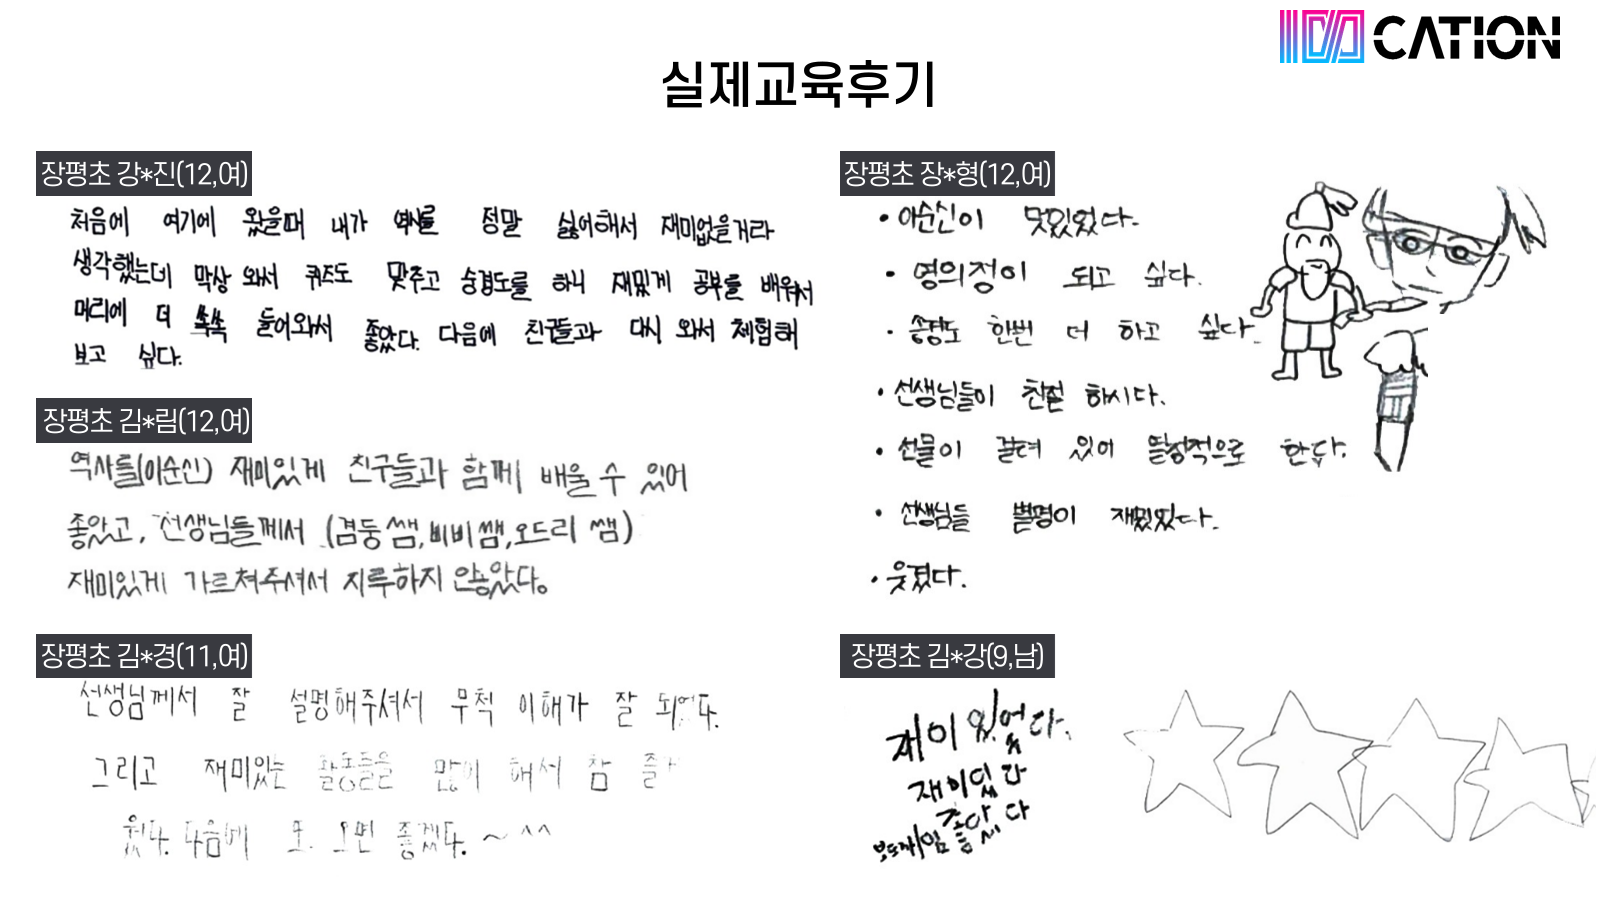 CATION
실제교육후기
장평초 강*진(12,여)
처음에 여기에 왔을때 내가 역사를 정말 싫어해서 재미없을거라
생각했는데 막상 와서 퀴즈도 맞추고 승경도를 하니 재밌게 공부를 배워서
머리에 더 쏙쏙 들어와서 좋았다. 다음에 친구들과 다시 와서 체험해
보고 싶다.
장평초 김*림(12,여)
역사를(이순신) 재미있게 친구들과 함께 배울 수 있어
좋았고, 선생님들께서 (겸둥쌤,삐삐쌤,오드리 쌤)
재미있게 가르쳐주셔서 지루하지 않았다.
장평초 김*경(11,여)
선생님께서 잘 설명해주셔서 무척 이해가 잘 되었다.
그리고 재미있는 활동들을 많이 해서 참 즐거
웠다. 다음에 또 오면 좋겠다. ~ ^^
장평초 장*형(12,여)
• 이순신이 멋있었다.
• 영의정이 되고 싶다.
• 승경도 한번 더 하고 싶다.
• 선생님들이 친절 하시다.
• 선물이 걸려 있어 열정적으로 한다.
• 선생님들 별명이 재밌었다.
• 웃겼다.
장평초 김*강(9,남)
재미있었다.
재미있다